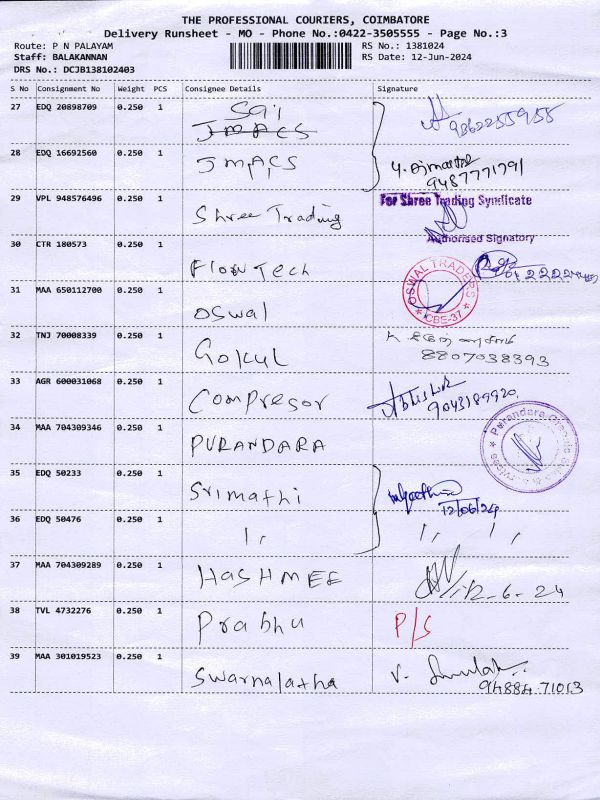 THE PROFESSIONAL COURIERS, COIMBATORE
Delivery Runsheet - MO - Phone No.:0422-3505555 - Page No.:3
Route: P N PALAYAM RS No.: 1381024
Staff: BALAKANNAN RS Date: 12-Jun-2024
DRS No.: DCJB138102403
S No Consignment No Weight PCS Consignee Details Signature
27 EDQ 20898709 0.250 1 Sai
JMACS
28 EDQ 16692560 0.250 1 JMACS
9487771791
29 VPL 948576496 0.250 1 Shree Trading For Shree Trading Syndicate
Authorised Signatory
30 CTR 180573 0.250 1 Flow Tech
31 MAA 650112700 0.250 1 Oswal OSWAL TRADERS CBE-37
32 TNJ 70008339 0.250 1 Gokul
8807038393
33 AGR 600031068 0.250 1 Compresor Abhishek
9043189920
34 MAA 704309346 0.250 1 PURANDARA Purandara
35 EDQ 50233 0.250 1 Srimathi
12/06/24
36 EDQ 50476 0.250 1 1, 1, 1,
37 MAA 704309289 0.250 1 HASHMEE 12-6-24
38 TVL 4732276 0.250 1 Prabhu P/S
39 MAA 301019523 0.250 1 Swarnalatha V.
94884 71013